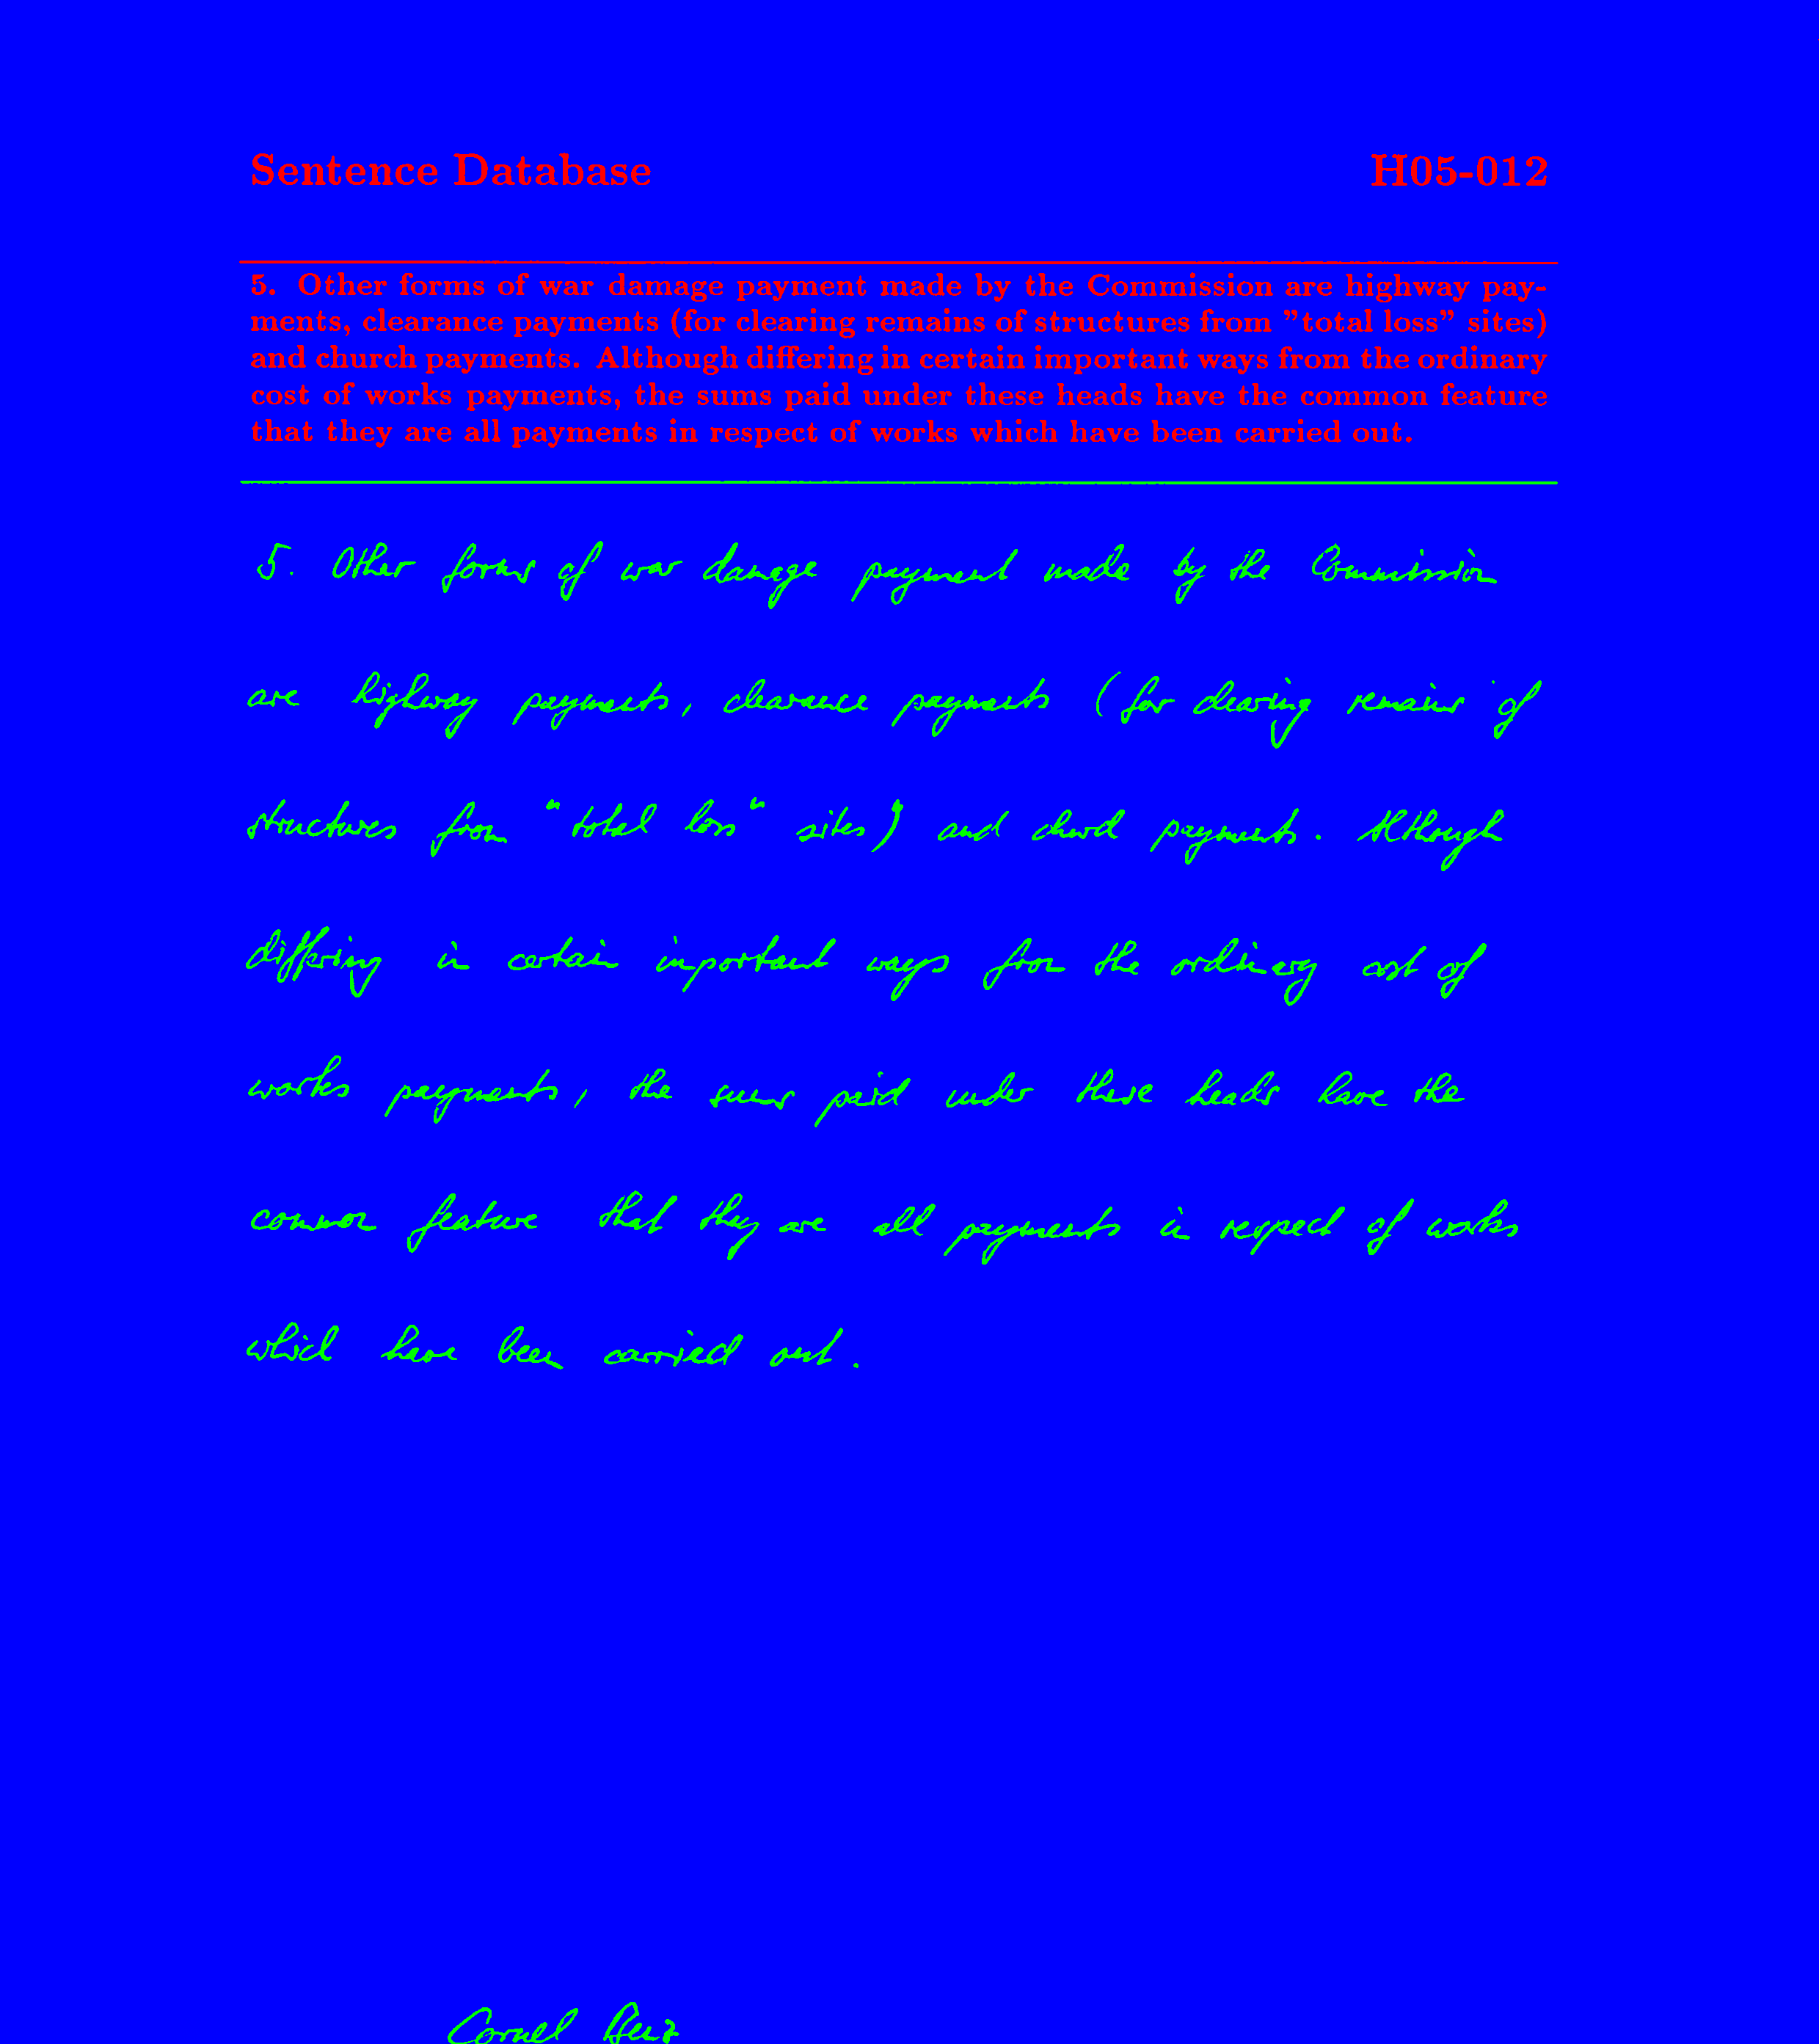 Sentence Database H05-012
5. Other forms of war damage payment made by the Commission are highway pay-
ments, clearance payments (for clearing remains of structures from "total loss" sites)
and church payments. Although differing in certain important ways from the ordinary
cost of works payments, the sums paid under these heads have the common feature
that they are all payments in respect of works which have been carried out.
5. Other forms of war damage payment made by the Commission
are highway payments, clearance payments (for clearing remains of
structures from "total loss" sites) and church payments. Although
differing in certain important ways from the ordinary cost of
works payments, the sums paid under these heads have the
common feature that they are all payments in respect of works
which have been carried out.
Cornel